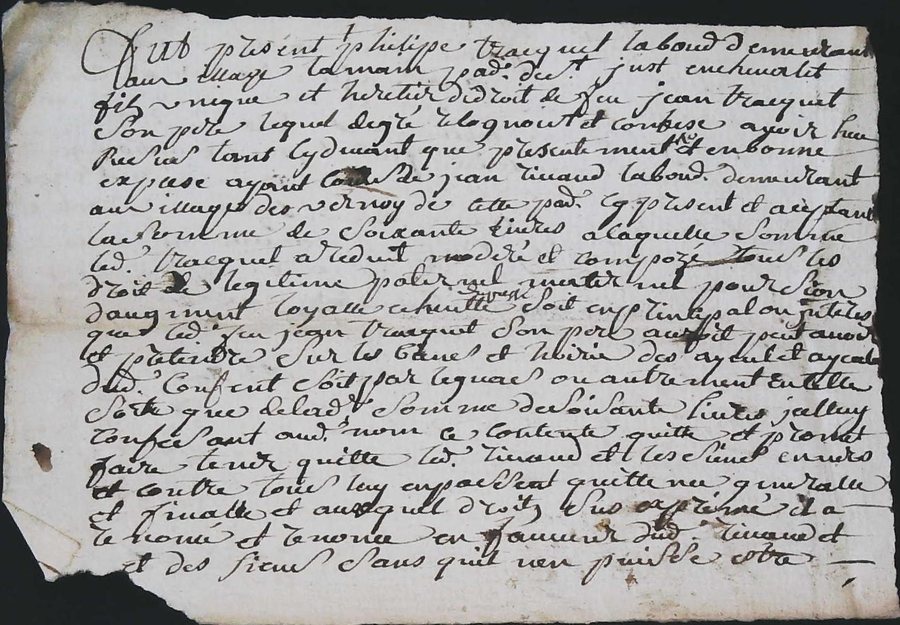 Fut present phelipe tracquet laboud demeurant
au village la main pad. de st just en chevalet
fils unique et heretier didroit de feu jean tracquet
son pere lequel de gré recognoist et confesse avoir heu
receu tant cy devant que presentement et en bonne
expese ayant cours de jean riuaud laboud. demeurant
au village des vernoy de cette pad. cy present et aceptant
la somme de soixante livres a laquelle somme
led. tracquet a reduit modéré et compozé tous les
droit de legitime paternel maternel pourssion
daugment loyalle soit en prinsipal ou interes
que led. feu jean tracquet son pere auroit peut avoir
et pretendre sur les biens et hoirie des ayeul et ayeulle
dud. soit par leguacs ou autrement en telle
sorte que de lad. somme de soisante livres jcelluy
confessant aud. nom ce contente quitte et promet
faire tenir quitte led. riuaud et les siens envers
et contre tous luy en passent quittence generalle
et finalle et ausquel droits sus exprimé il a
renoncé et renonce en faueur dud. riuaud et
et des siens sans quil nen puisse estre